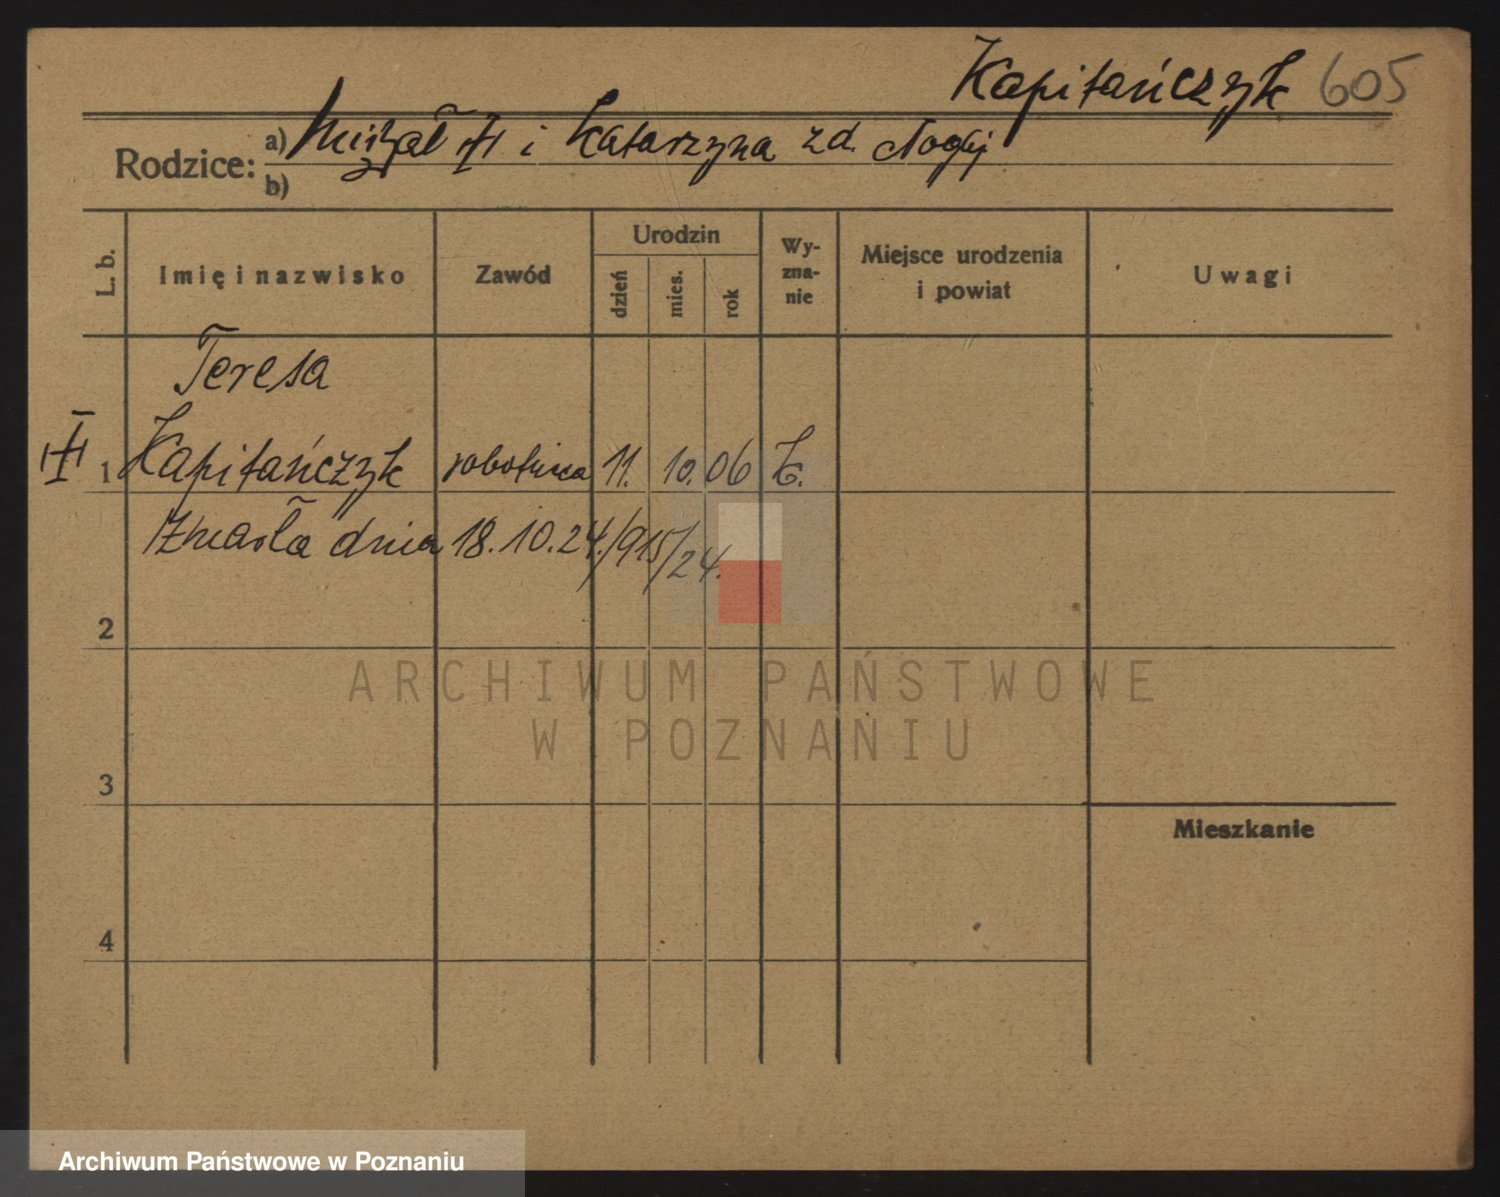 Kapitańczyk 605
Rodzice: a) Michał i Katarzyna zd. Nogaj
b)
L. b. Imię i nazwisko Zawód Urodzin dzień mies. rok Wy-zna-nie Miejsce urodzenia i powiat Uwagi
Teresa
1 Kapitańczyk robotnica 11. 10. 06 k.
Zmarła dnia 18.10.24./915/24.
2
ARCHIWUM PAŃSTWOWE
W POZNANIU
3
Mieszkanie
4
Archiwum Państwowe w Poznaniu